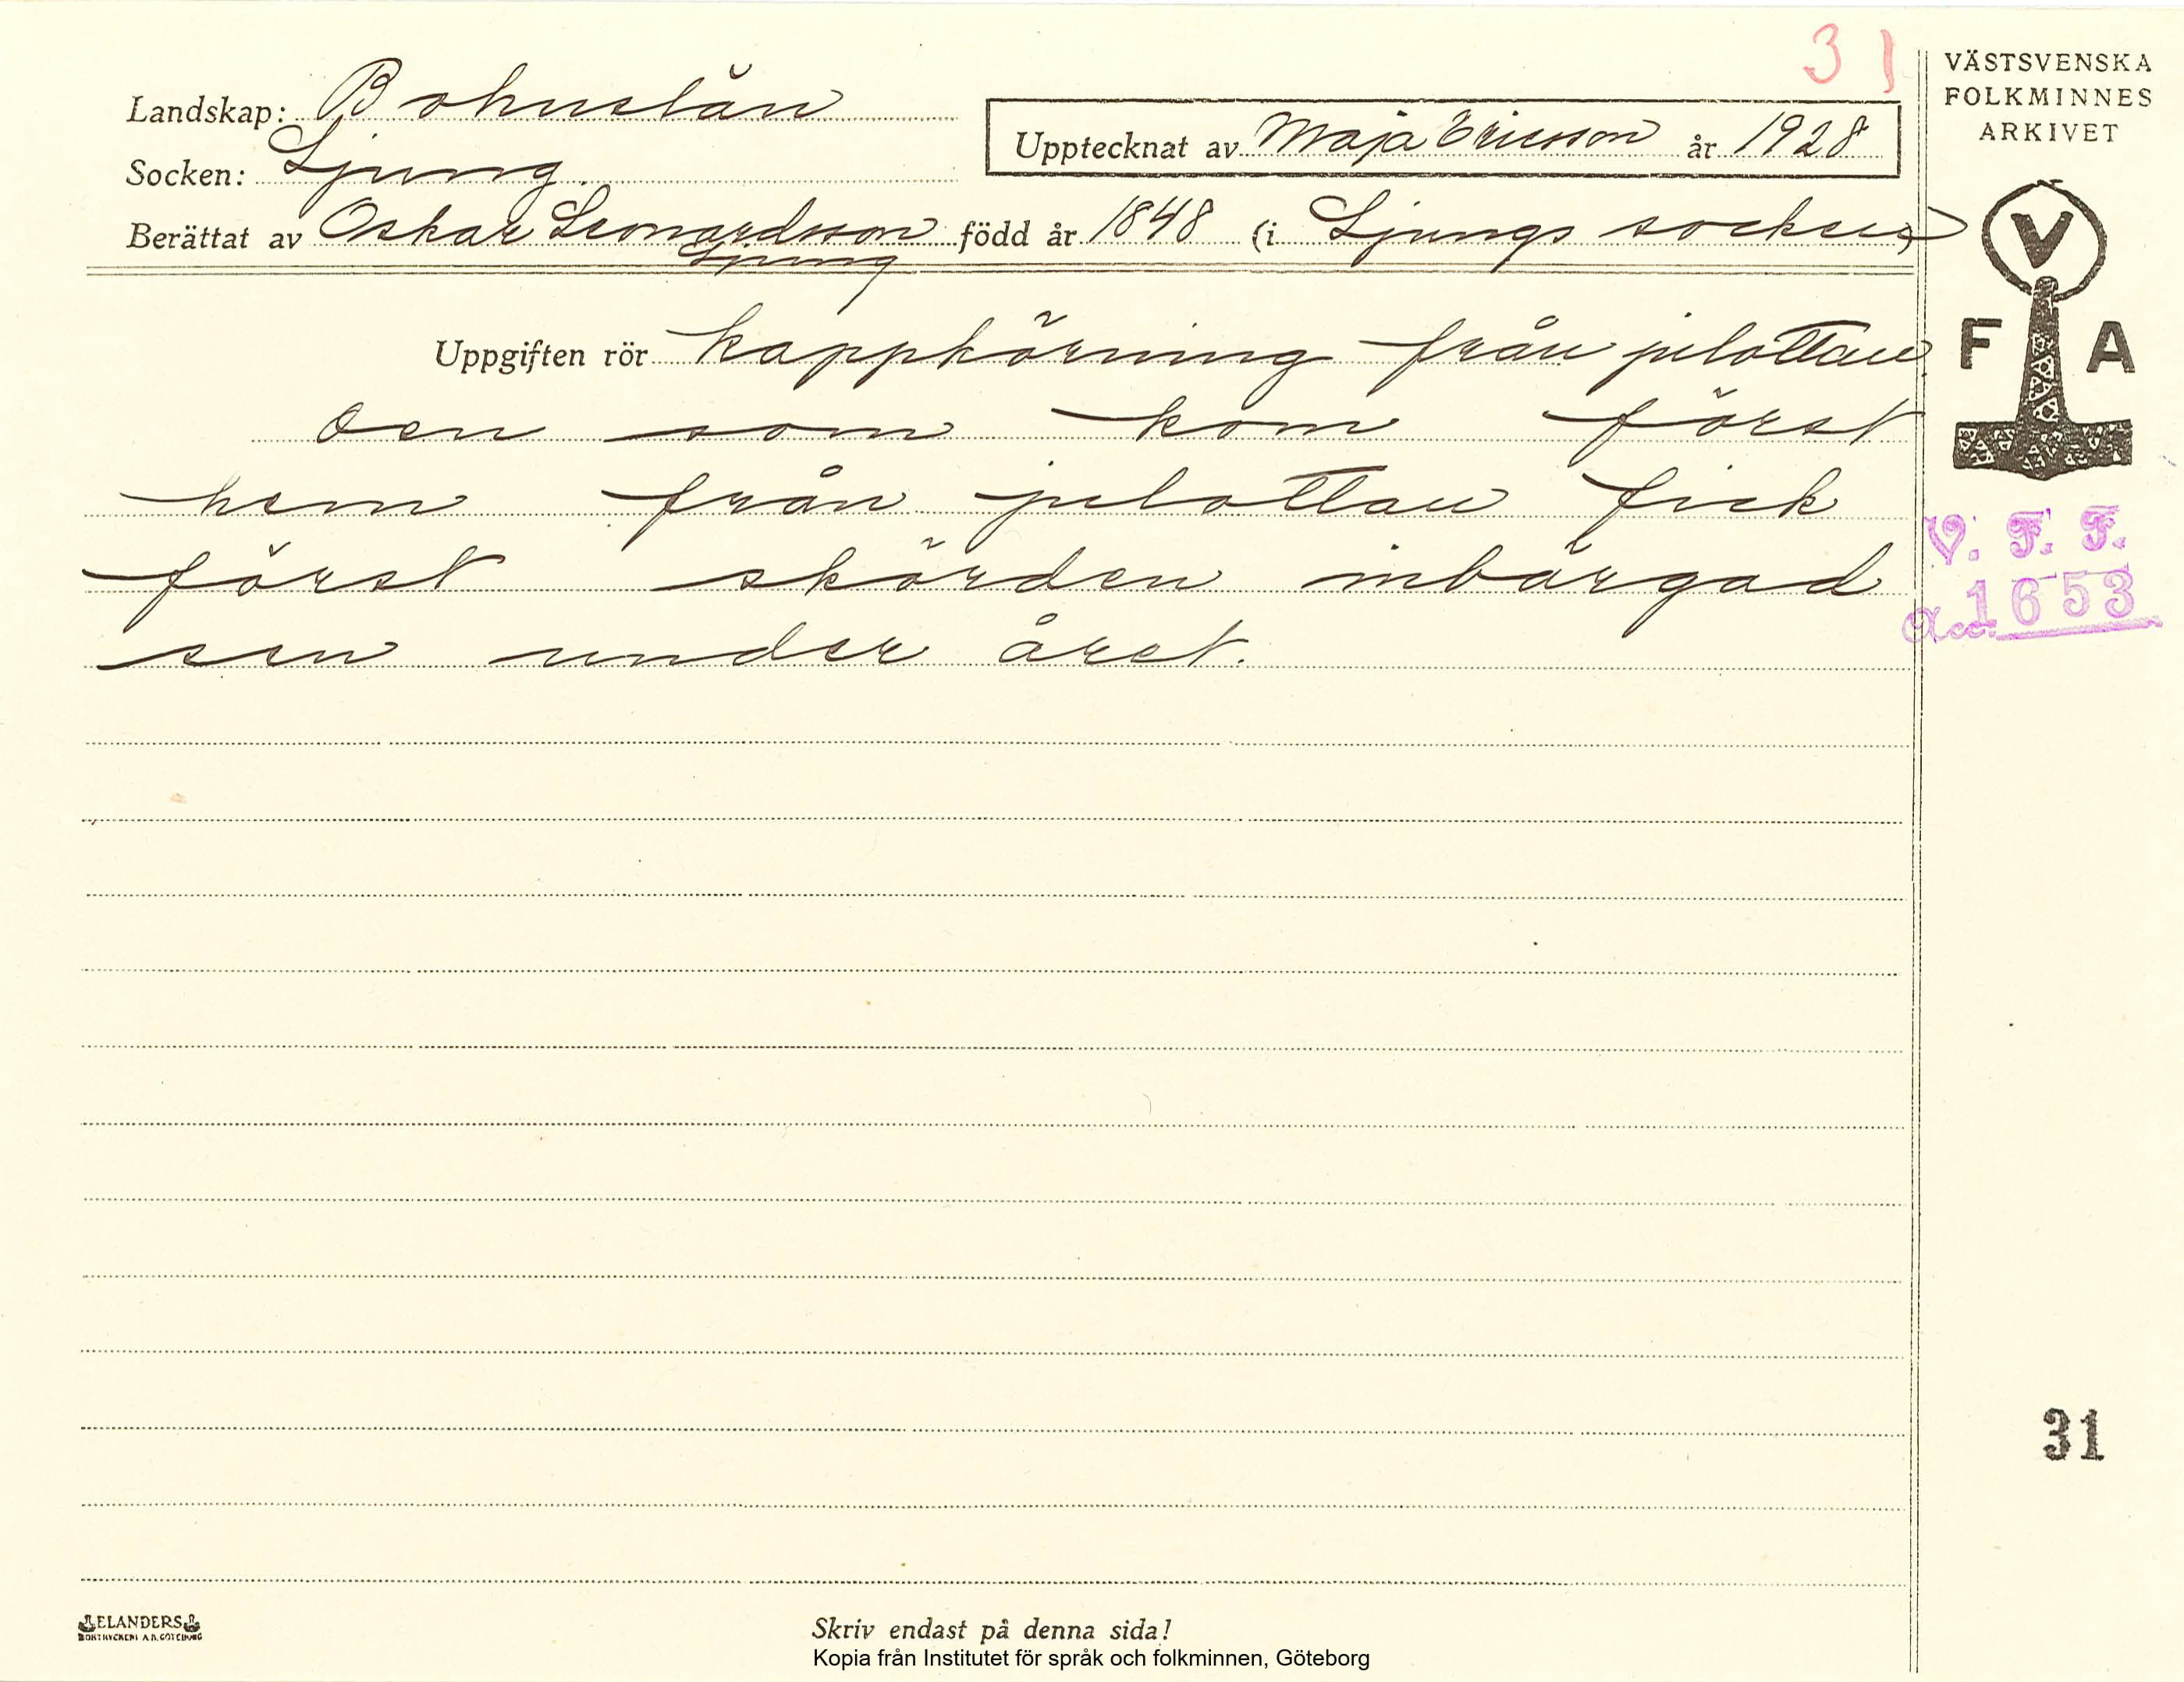 31
VÄSTSVENSKA
FOLKMINNES
ARKIVET
Landskap: Bohuslän
Upptecknat av Maja Ericsson år 1928
Socken: Ljung
Berättat av Oskar Leonardsson född år 1848 (i Ljungs socken)
Ljung
V
F A
Uppgiften rör kappkörning från julottan
Den som kom först
hem från julottan fick
först skörden inbärgad
sen under året.
V. F. F.
Acc. 1653
31
ELANDERS
BOKTRYCKERI A.B. GÖTEBORG
Skriv endast på denna sida!
Kopia från Institutet för språk och folkminnen, Göteborg